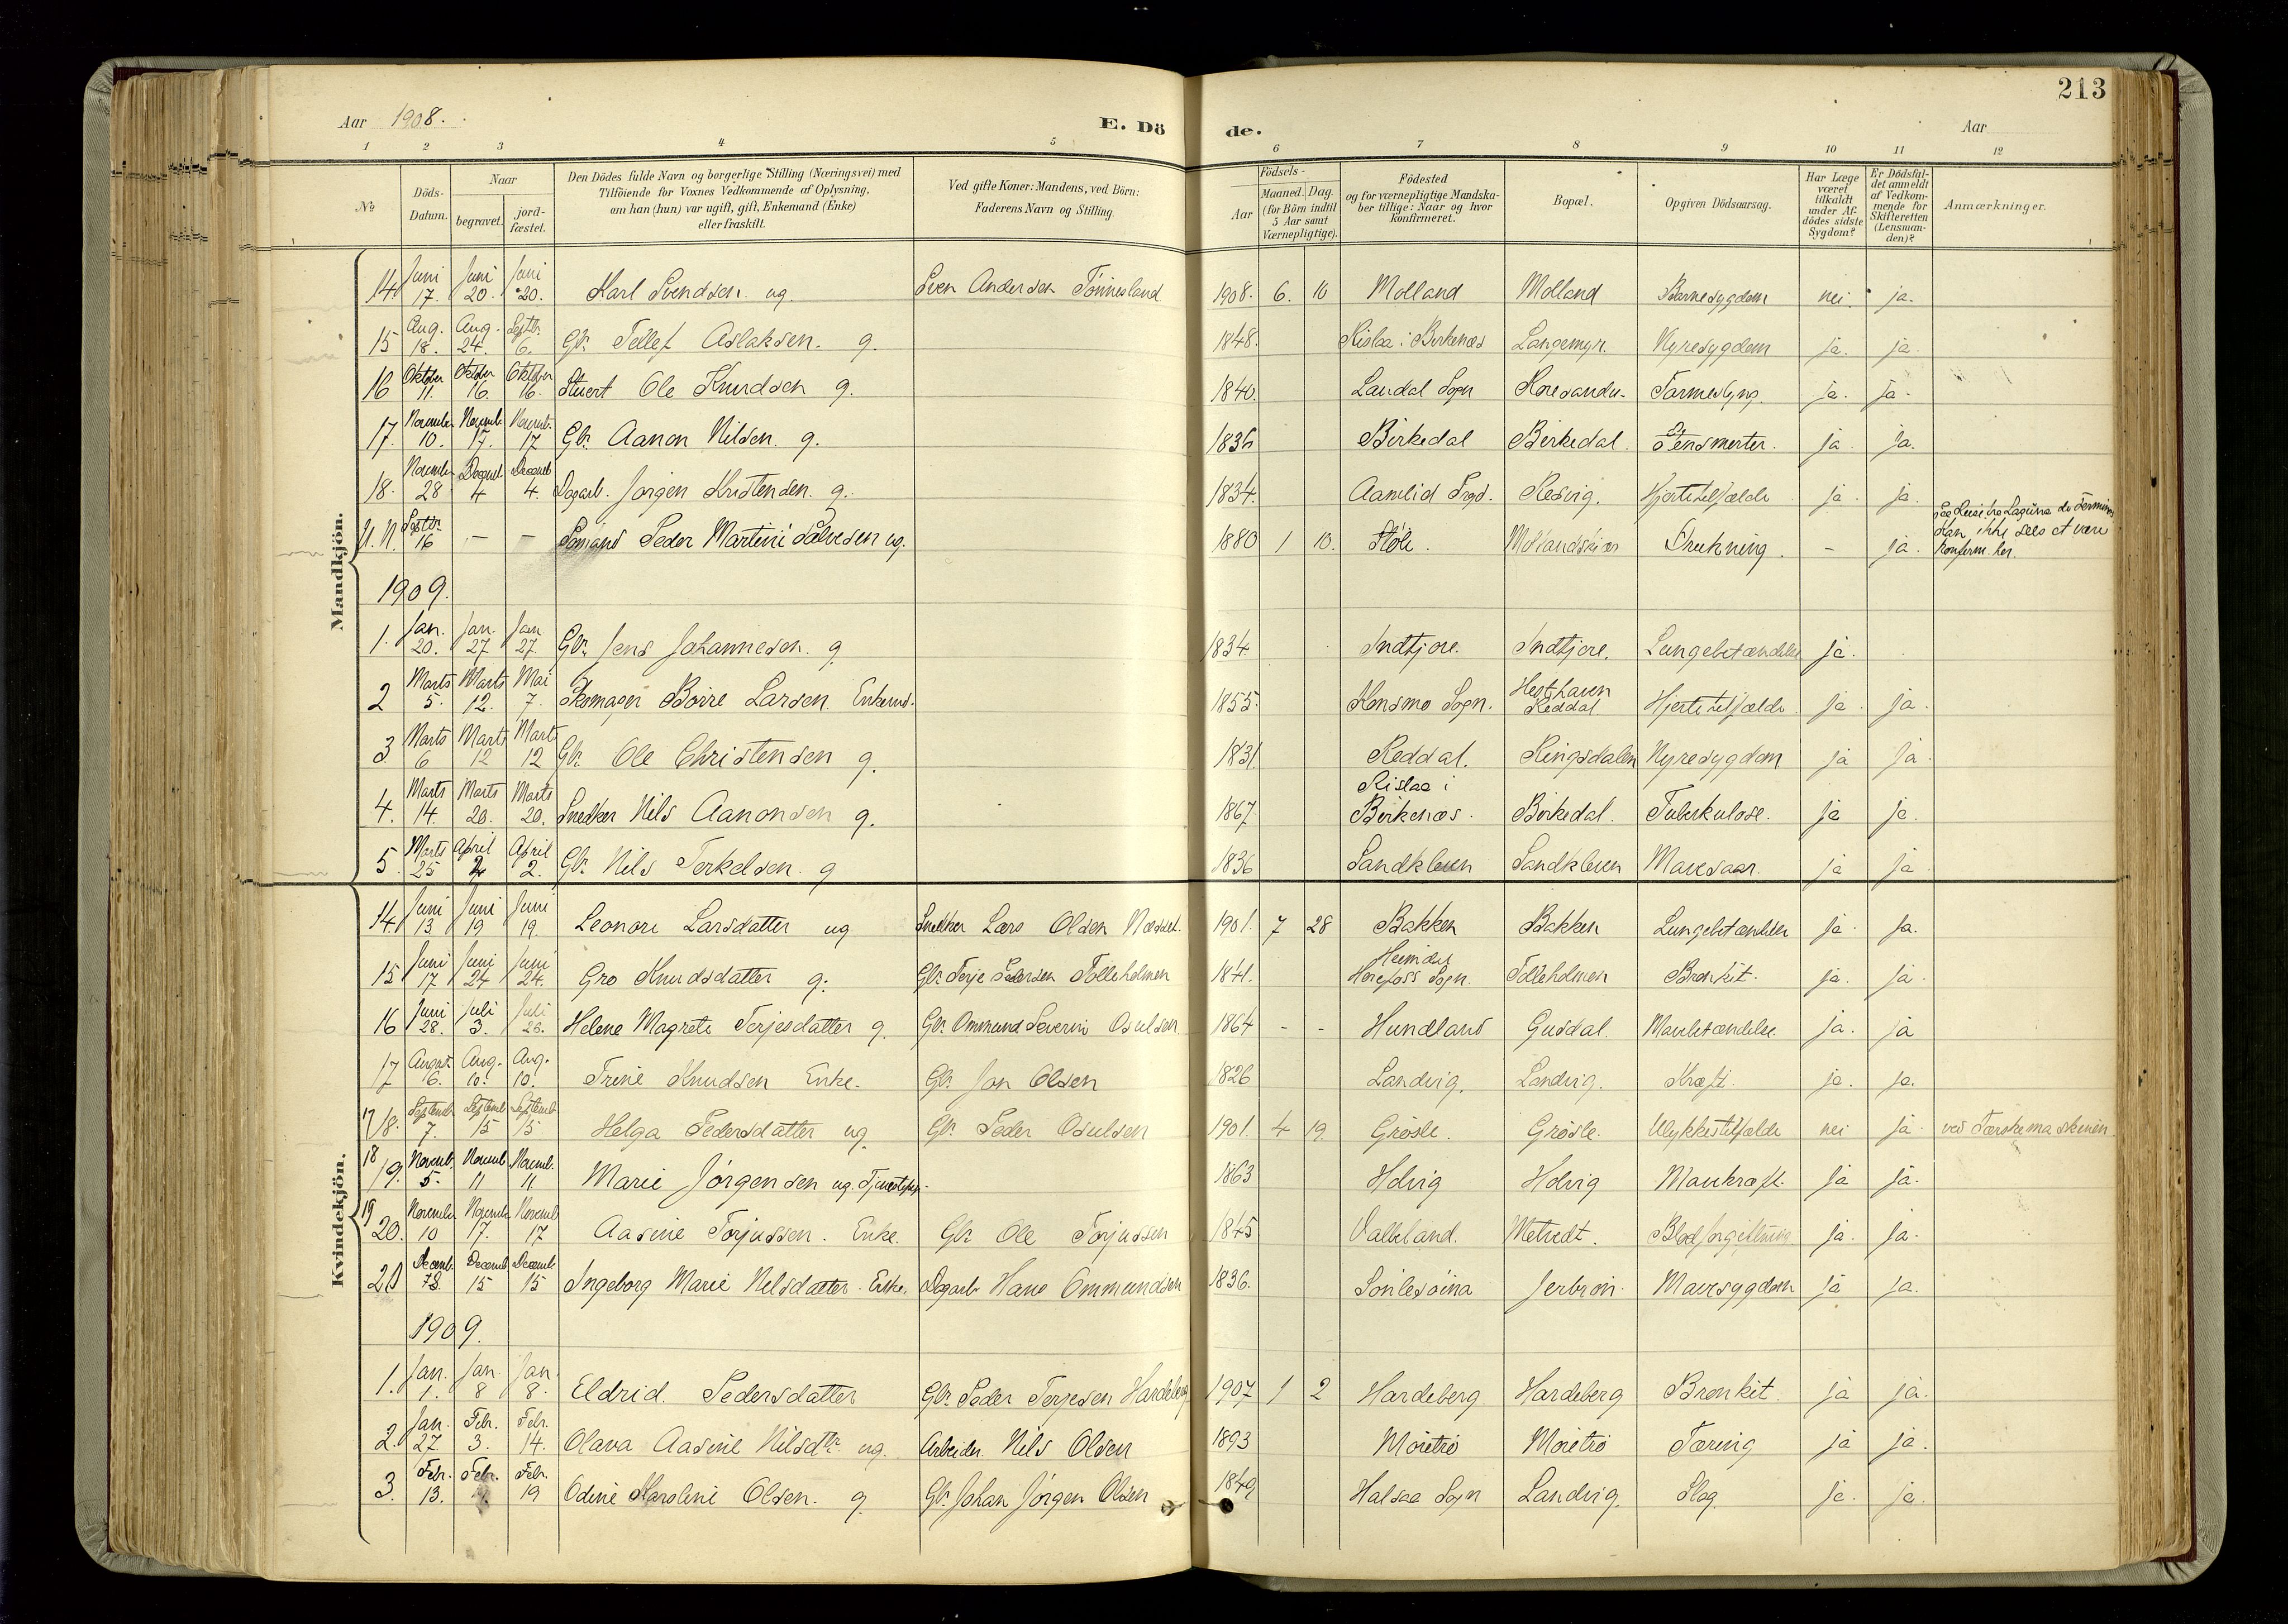 213
Aar 1908. E. Dö de. Aar
1 2 3 4 5 6 7 8 9 10 11 12
No Döds-Datum. Naar begravet. jord-fæstet. Den Dödes fulde Navn og borgerlige Stilling (Næringsvei) med Tilföiende for Voxnes Vedkommende af Oplysning, om han (hun) var ugift, gift, Enkemand (Enke) eller fraskilt. Ved gifte Koner: Mandens, ved Börn: Faderens Navn og Stilling. Födsels- Aar Maaned. Dag. (for Börn indtil 5 Aar samt Værnepligtige). Födested og for værnepligtige Mandskaber tillige: Naar og hvor konfirmeret. Bopæl. Opgiven Dödsaarsag. Har Læge været tilkaldt under Afdödes sidste Sygdom? Er Dödsfaldet anmeldt af Vedkommende for Skifteretten (Lensmanden)? Anmærkninger.
Mandkjön.
14 Juni 17. Juni 20. Juni 20. Karl Svendsen. ug. Sven Andersen Tönnesland 1908. 6. 10 Molland Molland Barnesygdom nei. ja.
15 Aug. 18. Aug. 24. Septbr. 6. Gbr. Tellef Aslaksen. g. 1848. Rislaa i Birkenæs Langemyr. Nyresygdom ja. ja.
16 Oktober 11. Oktober 16. Oktober 16. Ole Knudsen g. 1840. Laudal Sogn Tarmeslyng. ja. ja.
17. November 10. Novemb. 17. Novemb. 17 Gbr. Aanon Nilsen. g. 1836 Birkedal Birkedal. Stensmerter. ja. ja.
18. November 28 Decemb. 4 Decemb. 4. Dagarb. Jörgen Kristensen. g. 1834. Aamlid Sogn. Resvig. Hjertetilfælde ja. ja.
U. N. Septbr. 16 — — Sömand Peder Martini Salvesen ug. 1880 1 10. Stöle. Mollandskjær Drukning. - ja. Kan ikke sees at være konfirm. her.
1909.
1. Jan. 20. Jan. 27 Jan 27. Gbr. Jens Johannesen. g. 1834. Indtjore. Indtjore. Lungebetændelse ja.
2 Marts 5. Marts 12. Mai 7. Skomager Börre Larsen. Enkemd. 1855. Konsmo Sogn. Hesthaven Reddal Hjertetilfælde ja. ja.
3. Marts 6 Marts 12 Marts 12 Gbr. Ole Christensen g. 1831. Reddal. Ringsdalen Nyresygdom ja ja
4. Marts 14. Marts 20. Marts 20. Snedker Nils Aanonsen g. 1867 Rislaa i Birkenæs. Birkedal. Tuberkulose. ja ja.
5. Marts 25 April 2 April 2. Gbr. Nils Terkelsen. g 1836 Sandkleven Sandkleven Mavesaar. ja ja
Kvindekjön.
14. Juni 13. Juni 19 Juni 19. Leonore Larsdatter ug Snedker Lars Olsen Næsset. 1901. 7 28 Bakken Bakken Lungebetændelse ja. ja.
15 Juni 17 Juni 24 Juni 24. Gro Knudsdatter g. Gbr. Terje Pedersen Tolleholmen 1841. Heimdal Herefoss Sogn. Tolleholmen Bronkit. ja. ja.
16 Juni 28. Juli 3. Juli 26. Helene Magrete Terjesdatter g. Gbr. Ommund Severin Osulsen 1864 - - Hundland Gusdal. Mavebetændelse. ja. ja
17 August 6. Aug. 10. Aug. 10. Trine Knudsen Enke. Gbr. Jon Olsen 1826 Landvig. Landvig. Kræft. ja. ja.
17 18. Septemb. 7. Septemb. 15 Septemb. 15 Helga Pedersdatter ug Gbr. Peder Osulsen 1901. 4 19. Grösle. Grösle. Ulykkestilfælde nei ja. ved Tærskemaskinen
18 19. Novemb. 5. Novemb. 11 Novemb. 11 Marie Jörgensen ug. 1863 Holvig Holvig Mavekræft. ja ja.
19 20. November 10 Novemb. 17. Novemb. 17 Aasine Torjussen. Enke. Gbr. Ole Torjussen 1845 Valleland. Metvedt. Blodforgiftning ja. ja.
20 Decemb. 8. Decemb. 15 Decemb. 15 Ingeborg Marie Nilsdatter. Enke. Dagarb. Hans Ommundsen 1836. Jerbron. Mavesygdom ja ja.
1909.
1. Jan. 1. Jan. 8 Jan. 8. Eldrid. Pedersdatter Gbr. Peder Terjesen Hardeberg 1907 1 2 Hardeberg Hardeberg Bronkit. ja ja.
2. Jan. 27. Febr. 3. Febr. 14. Olava Aasine Nilsdtr. ug. Arbeider Nils Olsen 1893 Moietrö Moietrö Tæring ja ja.
3. Febr. 13. Febr. Febr. 19 Odine Karoline Olsen. g Gbr. Johan Jörgen Olsen 1849 Halsaa Sogn Landvig. Slag. ja. ja.